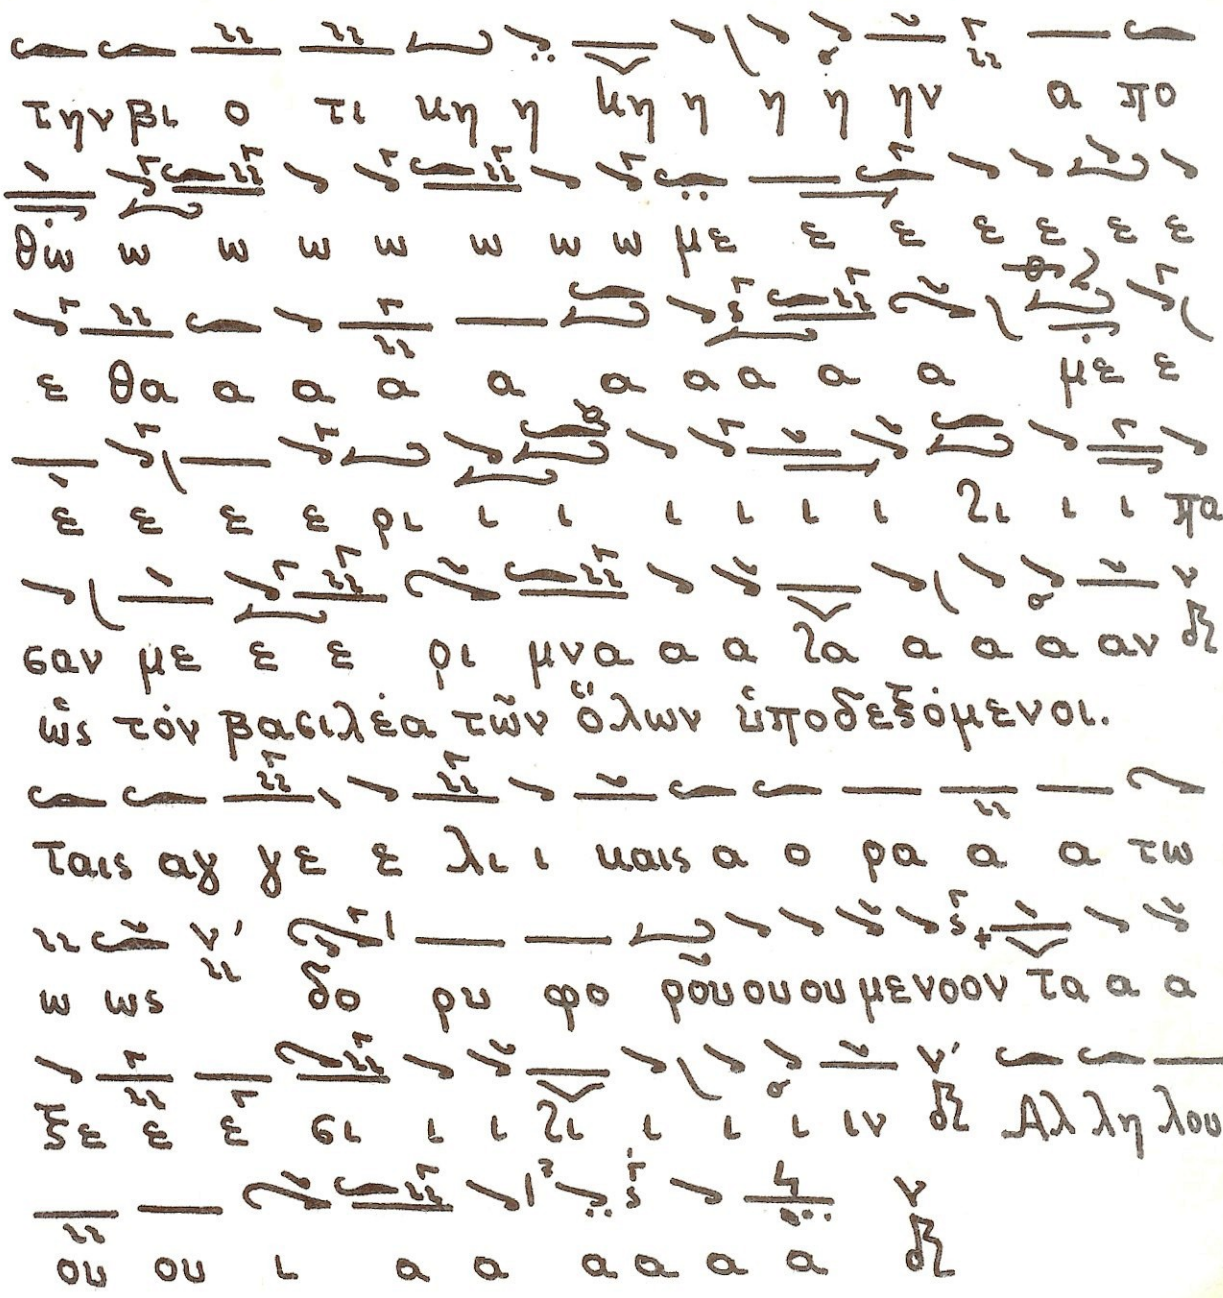 την βι ο τι κη η κη η η η ην α πο
θώ ω ω ω ω ω ω ω με ε ε ε ε ε ε
ε θα α α α α α α α α α με ε
ε ε ε ε ρι ι ι ι ι ι ι ι ι ι πα
σαν με ε ε ρι μνα α α α α α α αν
ὡς τόν βασιλέα τῶν ὅλων ὑποδεξόμενοι.
ταις αγ γε ε λι ι καις α ο ρα α α τω
ω ως δο ρυ φο ρού ου ου ου με νο ον τα α α
ξε ε ε σι ι ι ι ι ι ι ιν Αλ λη λου
ου ου ι α α α α α α